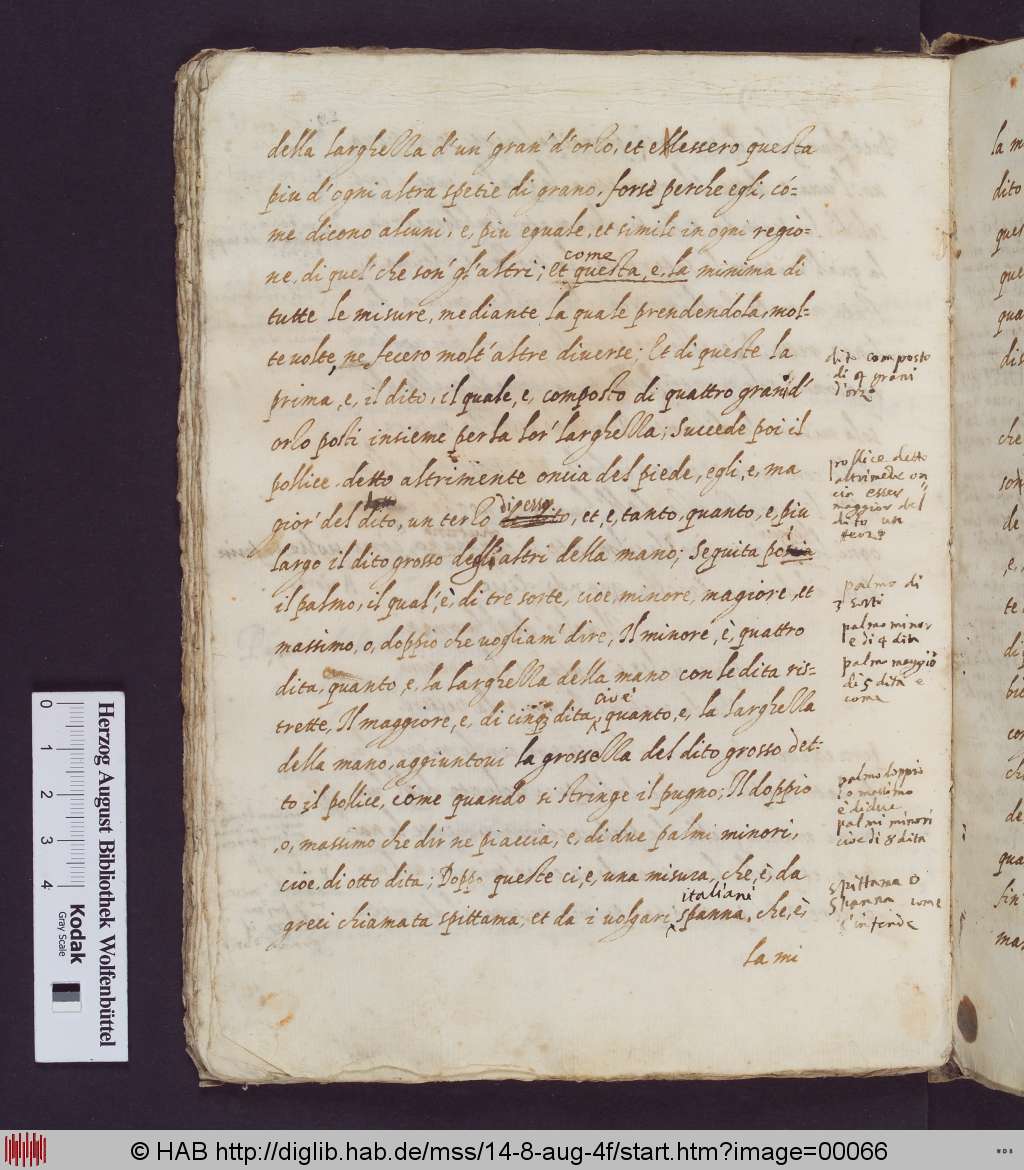 della larghezza d'un' gran' d'orzo, et elessero questa
piu d'ogni altra spetie di grano, forse perche egli, có=
me dicono alcuni, e, piu eguale, et simile in ogni regio=
ne, di quel' che son' gl'altri; come
et questa, e, la minima di
tutte le misure, mediante la quale prendendola, mol=
te uolte, ne fecero molt'altre diverse; Et di queste la
prima, e, il dito, il quale, e, composto di quattro grani d'
orzo posti insieme per la lor' larghezza; Succede poi il
pollice detto altrimente oncia del piede, egli, e, ma
gior' del dito, un terzo di esso, et, e, tanto, quanto, e, piu
largo il dito grosso degli altri della mano; Seguita poi
il palmo, il qual', è, di tre sorte, cioe, minore, magiore, et
massimo, o, doppio che uogliam' dire, Il minore, è, quattro
dita, quanto, e, la larghezza della mano con le dita ris=
trette, Il maggiore, e, di cinq dita, cioè quanto, e, la larghezza
della mano, aggiuntoui la grossezza del dito grosso det=
to il pollice, cóme quando si stringe il pugno; Il doppio
,o, massimo che dir ne piaccia, e, di due palmi minori,
cioe, di otto dita; Doppo queste ci, e, una misura, che, è, da
greci chiamata spittama, et da i uolgari italiani spanna, che, è
la mi
dito composto
di 4 grani
d'orzo
pollice detto
altrimente on
cia esser
maggior del
dito un
terzo
palmo di
3 sorti
palmo minor
e di 4 dita
palmo maggio
di 5 dita e
come
palmo doppio
o massimo
è di due
palmi minori
cioe di 8 dita
spittama o
spanna come
s'intende
la m
dito
ques
que
qua
dis
che
son
de
,e,
te
di
con
che
de
qua
sin
mag
0 1 2 3 4
Kodak
Gray Scale
Herzog August Bibliothek Wolfenbüttel
© HAB http://diglib.hab.de/mss/14-8-aug-4f/start.htm?image=00066